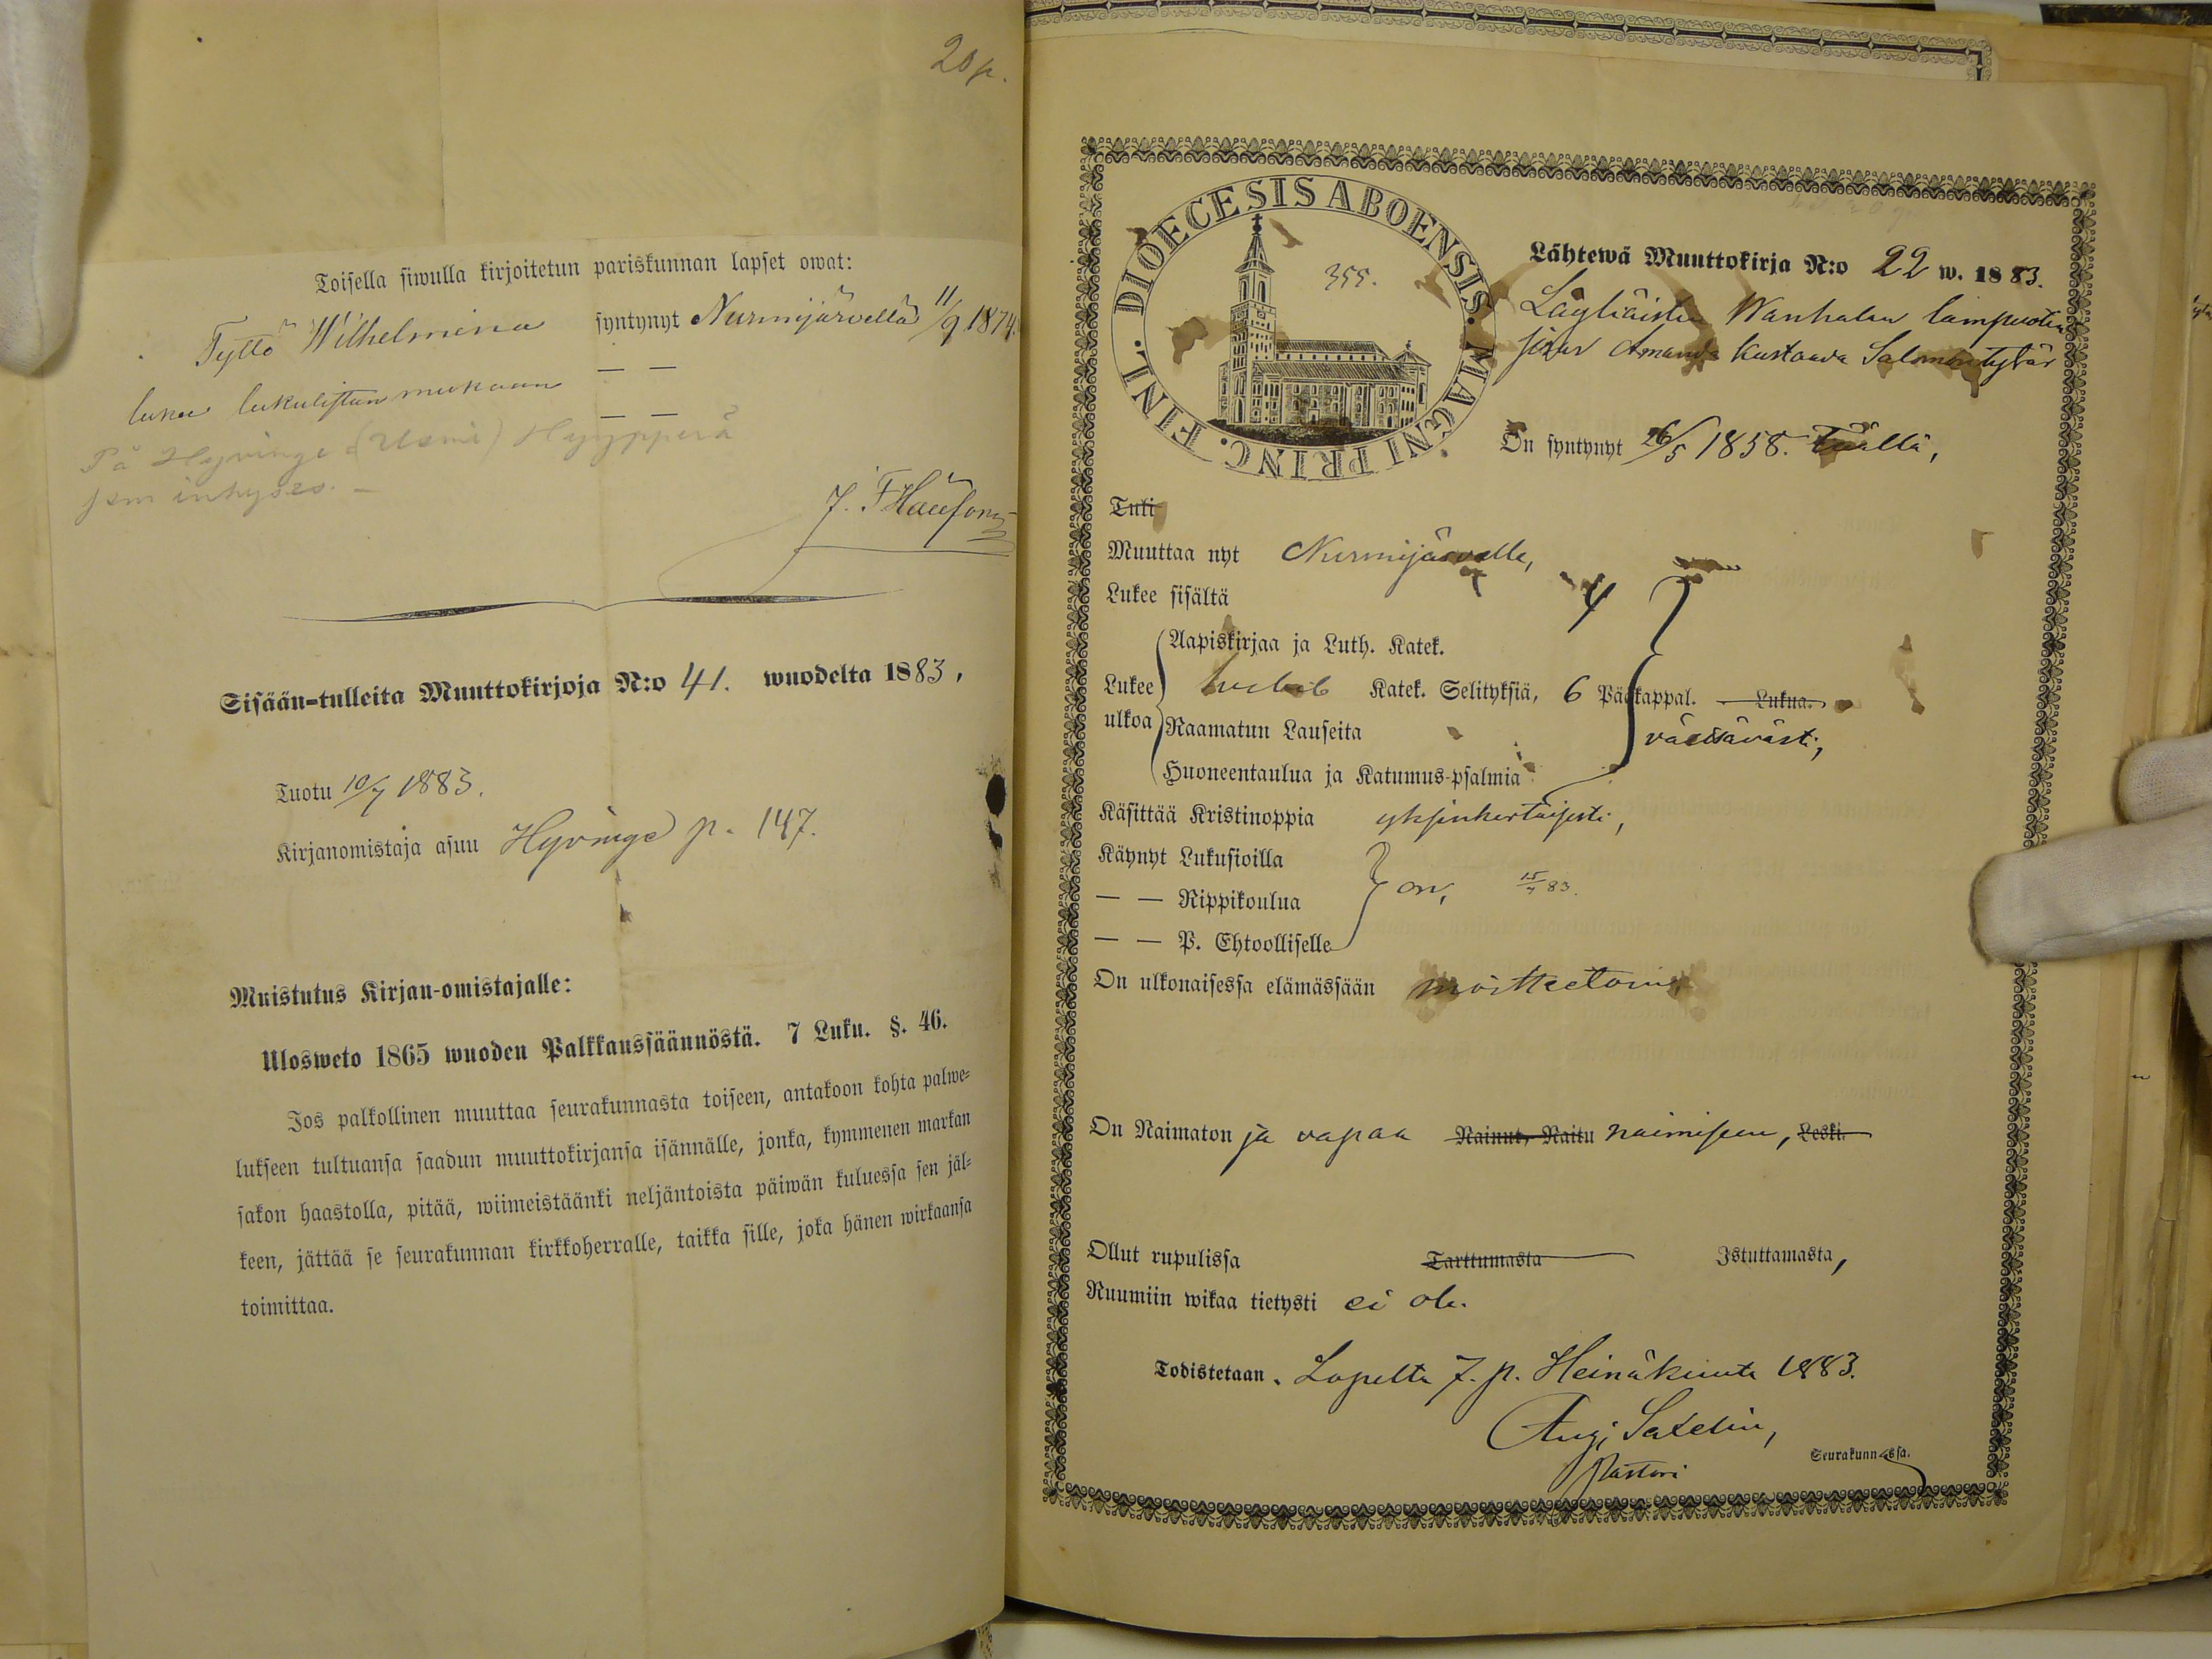 20 p.
Toisella siwulla kirjoitetun pariskunnan lapset owat:
Tyttö Wilhelmina syntynyt Nurmijärvellä 11/9 1874.
lukee lukulistan mukaan — —
— —
På Hyvinge (Usmi) Hyyppärä
som inhyses. —
Sisään-tulleita Muuttokirjoja N:o 41. wuodelta 1883,
Tuotu 10/7 1883.
Kirjanomistaja asuu Hyvinge p. 147.
Muistutus Kirjan-omistajalle:
Ulosweto 1865 wuoden Palkkaussäännöstä. 7 Luku. §. 46.
Jos palkollinen muuttaa seurakunnasta toiseen, antakoon kohta palwe-
lukseen tultuansa saadun muuttokirjansa isännälle, jonka, kymmenen markan
sakon haastolla, pitää, wiimeistäänki neljäntoista päiwän kuluessa sen jäl-
keen, jättää se seurakunnan kirkkoherralle, taikka sille, joka hänen wirkaansa
toimittaa.
DIOECESIS ABOENSIS. MAGNI PRINC. FINL.
355.
Lähtewä Muuttokirja N:o 22 w. 1883.
Läyliäisten Wanhalan lampuotin
sisar Amanda Kustaava Salomontytär
On syntynyt 26/5 1858. Täällä,
Tuli
Muuttaa nyt Nurmijärvelle,
Lukee sisältä 4
Aapiskirjaa ja Luth. Katek.
Lukee Katek. Selityksiä, 6 Pääkappal. Lukua.
ulkoa Raamatun Lauseita välttävästi,
Huoneentaulua ja Katumus-psalmia
Käsittää Kristinoppia yksinkertaisesti,
Käynyt Lukusioilla
— — Rippikoulua on, 15/4 83.
— — P. Ehtoolliselle
On ulkonaisessa elämässään moitteetoin
On Naimaton ja vapaa Nainut, Naitu naimiseen, Leski.
Ollut rupulissa Tarttumasta Istuttamasta,
Ruumiin wikaa tietysti ei ole.
Todistetaan. Lopelta 7. p. Heinäkuuta 1883.
Aug. Salelin,
Pastori Seurakunnassa.